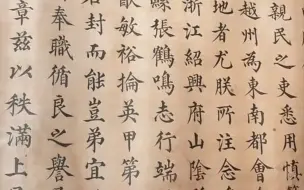 親民之吏悉用慎
越州為東南都會
地者尤朕所注念
浙江紹興府山陰
縣張鶴鳴志行端
猷敏裕掄英甲第
封而能豈弟宜
奉職循良之譽
章茲以秩滿上